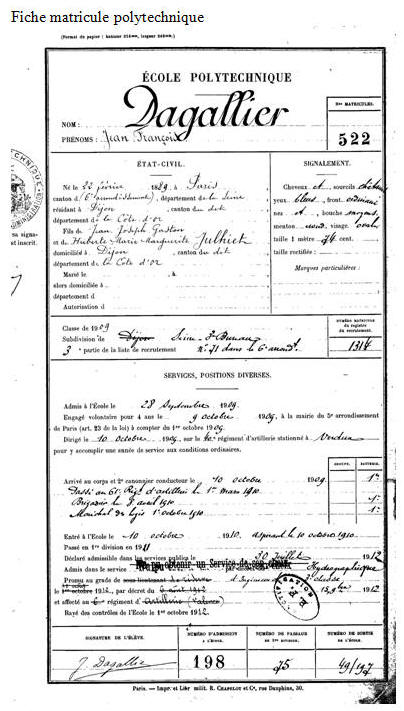 Fiche matricule polytechnique
(Format du papier : hauteur 31cm, largeur 20cm.)
ÉCOLE POLYTECHNIQUE
NOM : Dagallier
PRÉNOMS : Jean François
Nos MATRICULES.
522
ÉTAT-CIVIL.
Né le 22 février 1889, à Paris
canton d (6e arrondissement), département de la Seine
résidant à Dijon, canton du dit
département de la Côte d'or
Fils de Jean Joseph Gaston
et de Huberte Marie Marguerite Julhiet
domiciliés à Dijon, canton du dit
département de la Côte d'or
Marié le à
alors domiciliée à
département d
Autorisation d
SIGNALEMENT.
Cheveux et sourcils
yeux bleus, front ordinaire
nez et, bouche moyens
menton rond, visage ovale
taille 1 mètre 74 cent.
taille rectifiée :
Marques particulières :
sa signa-
st inscrit.
Classe de 1909
Subdivision de Dijon Seine 3e Bureau
3e partie de la liste de recrutement No 71 dans le 6e arrondt.
NUMÉRO MATRICULE
du registre
du recrutement.
1317
SERVICES, POSITIONS DIVERSES.
Admis à l'École le 28 Septembre 1909.
Engagé volontaire pour 4 ans le 9 octobre 1909, à la mairie du 5e arrondissement
de Paris (art. 23 de la loi) à compter du 1er octobre 1909
Dirigé le 10 octobre 1909, sur le régiment d'artillerie stationné à Verdun
pour y accomplir une année de service aux conditions ordinaires.
GROUPE. BATTERIE.
Arrivé au corps et 2e canonnier conducteur le 10 octobre 1909. 1re
Passé au 61e Régt d'artillerie le 1er mars 1910
Brigadier le avril 1910 1re
Maréchal des logis 1er octobre 1910 1re
Entré à l'École le 10 octobre 1910.
Passé en 1re division en 1911
Déclaré admissible dans les services publics le 30 Juillet 1912
Admis dans le service Hydrographique
Promu au grade de sous-lieutenant d'Ingénieur
1er octobre 1912, par décret du 1912
et affecté au 6e régiment d'Artillerie (Valence)
Rayé des contrôles de l'École le 1er octobre 1912.
RECTIFICATION
E. P.
SIGNATURE DE L'ÉLÈVE.
J. Dagallier
NUMÉRO D'ADMISSION
à l'École.
198
NUMÉRO DE PASSAGE
en 1re division.
75
NUMÉRO DE SORTIE
de l'École.
49/197
Paris. — Impr. et Libr. milit. R. CHAPELOT et Ce, rue Dauphine, 30.